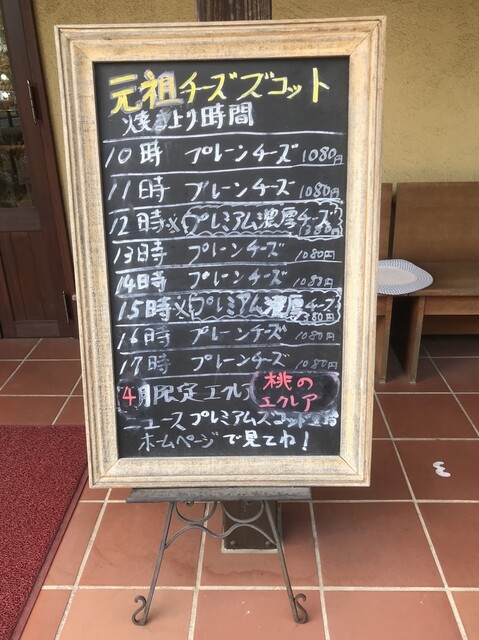 元祖チーズズコット
焼き上り時間
10時 プレーンチーズ 1080円
11時 プレーンチーズ 1080円
12時 プレミアム濃厚チーズ 1380円
13時 プレーンチーズ 1080円
14時 プレーンチーズ 1080円
15時 プレミアム濃厚チーズ 1380円
16時 プレーンチーズ 1080円
17時 プレーンチーズ 1080円
4月限定エクレア 桃のエクレア
ニュースプレミアムズコット
ホームページで見てね!
3